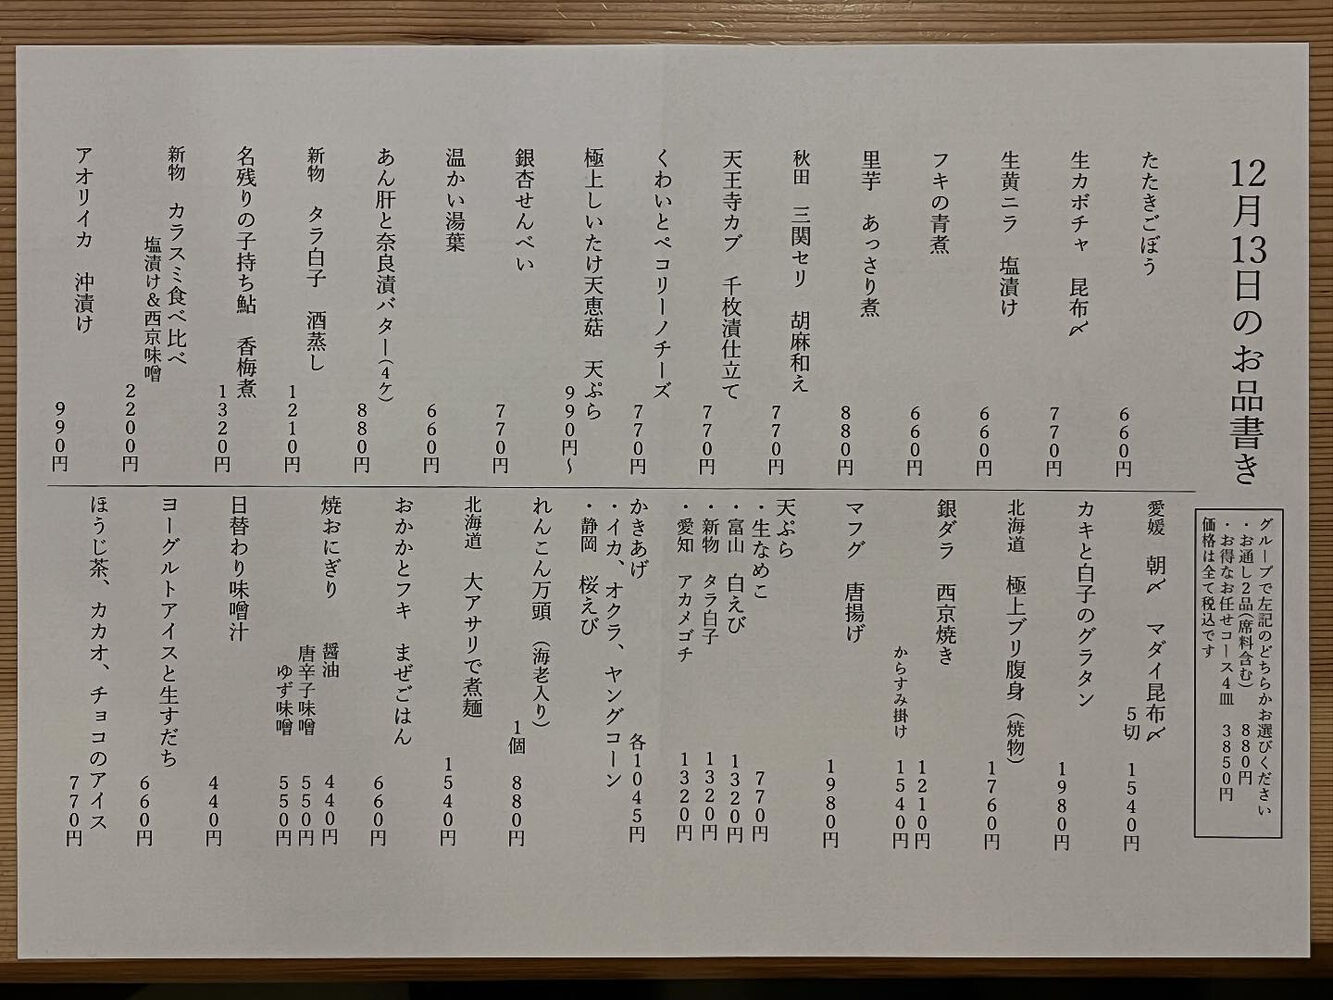 12月13日のお品書き
グループで左記のどちらかお選びください
・お通し2品(席料含む) 880円
・お得なお任せコース4皿 3850円
価格は全て税込です
たたきごぼう 660円
生カボチャ 昆布〆 770円
生黄ニラ 塩漬け 660円
フキの青煮 660円
里芋 あっさり煮 880円
秋田 三関セリ 胡麻和え 770円
天王寺カブ 千枚漬仕立て 770円
くわいとペコリーノチーズ 770円
極上しいたけ天恵菇 天ぷら 990円~
銀杏せんべい 770円
温かい湯葉 660円
あん肝と奈良漬バター(4ケ) 880円
新物 タラ白子 酒蒸し 1210円
名残りの子持ち鮎 香梅煮 1320円
新物 カラスミ食べ比べ
塩漬け&西京味噌 2200円
アオリイカ 沖漬け 990円
愛媛 朝〆 マダイ昆布〆
5切 1540円
カキと白子のグラタン 1980円
北海道 極上ブリ腹身(焼物) 1760円
銀ダラ 西京焼き 1210円
からすみ掛け 1540円
マフグ 唐揚げ 1980円
天ぷら
・生なめこ 770円
・富山 白えび 1320円
・新物 タラ白子 1320円
・愛知 アカメゴチ 1320円
かきあげ 各1045円
・イカ、オクラ、ヤングコーン
・静岡 桜えび
れんこん万頭 (海老入り)
1個 880円
北海道 大アサリで煮麺 1540円
おかかとフキ まぜごはん 660円
焼おにぎり 醤油 440円
唐辛子味噌 550円
ゆず味噌 550円
日替わり味噌汁 440円
ヨーグルトアイスと生すだち 660円
ほうじ茶、カカオ、チョコのアイス 770円